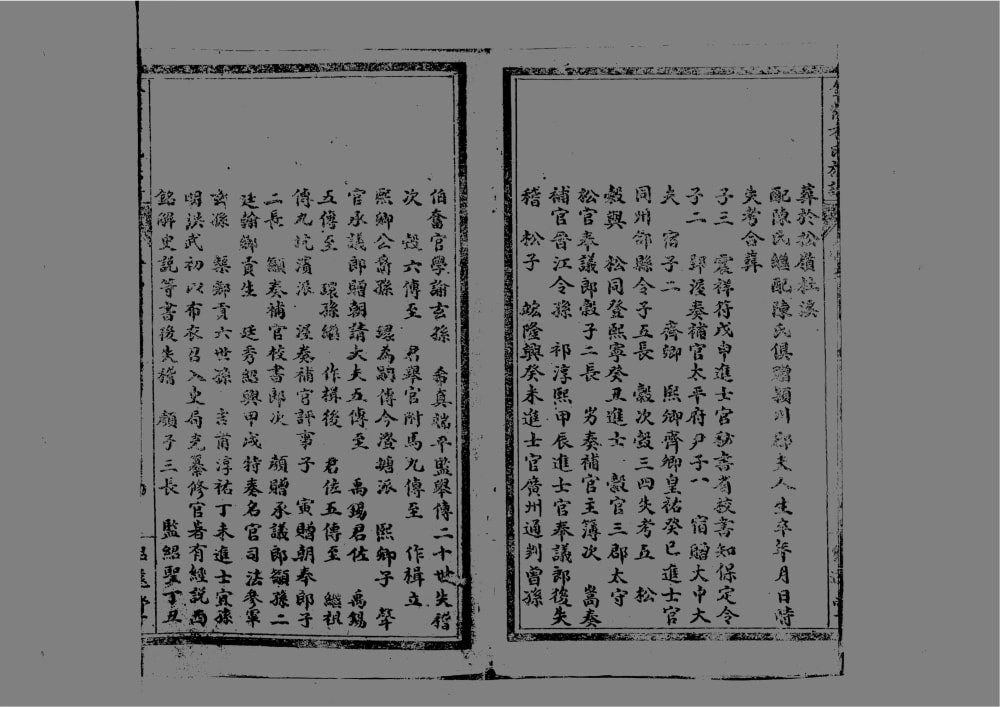 葬於松嶺柱溪
配陳氏繼配陳氏俱贈潁川郡夫人生卒年月日時
失考合葬
子三 霙祥符戊申進士官秘書省校書知保定令
子二 郢浸奏補官太平府尹子八 宿贈大中大
夫 宿子二 齊卿 熙卿齊卿皇祐癸巳進士官
同州郃縣令子五長 穀次瑴三四失考五 松
穀與 松同登熙寧癸丑進士 穀官三郡太守
松官奉議郎穀子二長 芀奏補官主簿次 蒿奏
補官晉江令孫 祁淳熙甲辰進士官奉議郎後失
稽 松子 竑隆興癸未進士官廣州通判曾孫
伯奮官學諭玄孫 希真端平監舉傳二十世失稽
次 瑴六傳至 君舉官附馬九傳至 作楫立
熙卿公裔孫 璟為嗣傳今澄塘派 熙卿子 聲
官承議郎贈朝請大夫五傳至 禹錫君佐 禹錫
五傳至 環孫繼 作楫後 君佐五傳至 繼祖
傳九坑濱派 浧奏補官評事子 寅贈朝奉郎子
二長 顯奏補官校書郎次 頗贈承議郎顯孫二
廷翰鄉貢生 廷秀紹興甲戌特奏名官司法參軍
玄孫 槩鄉貢六世孫 言甫淳祐丁未進士寅孫
明洪武初以布衣召入史局充纂修官著有經說西
銘解史說等書後失稽 頗子三長 監紹聖丁丑